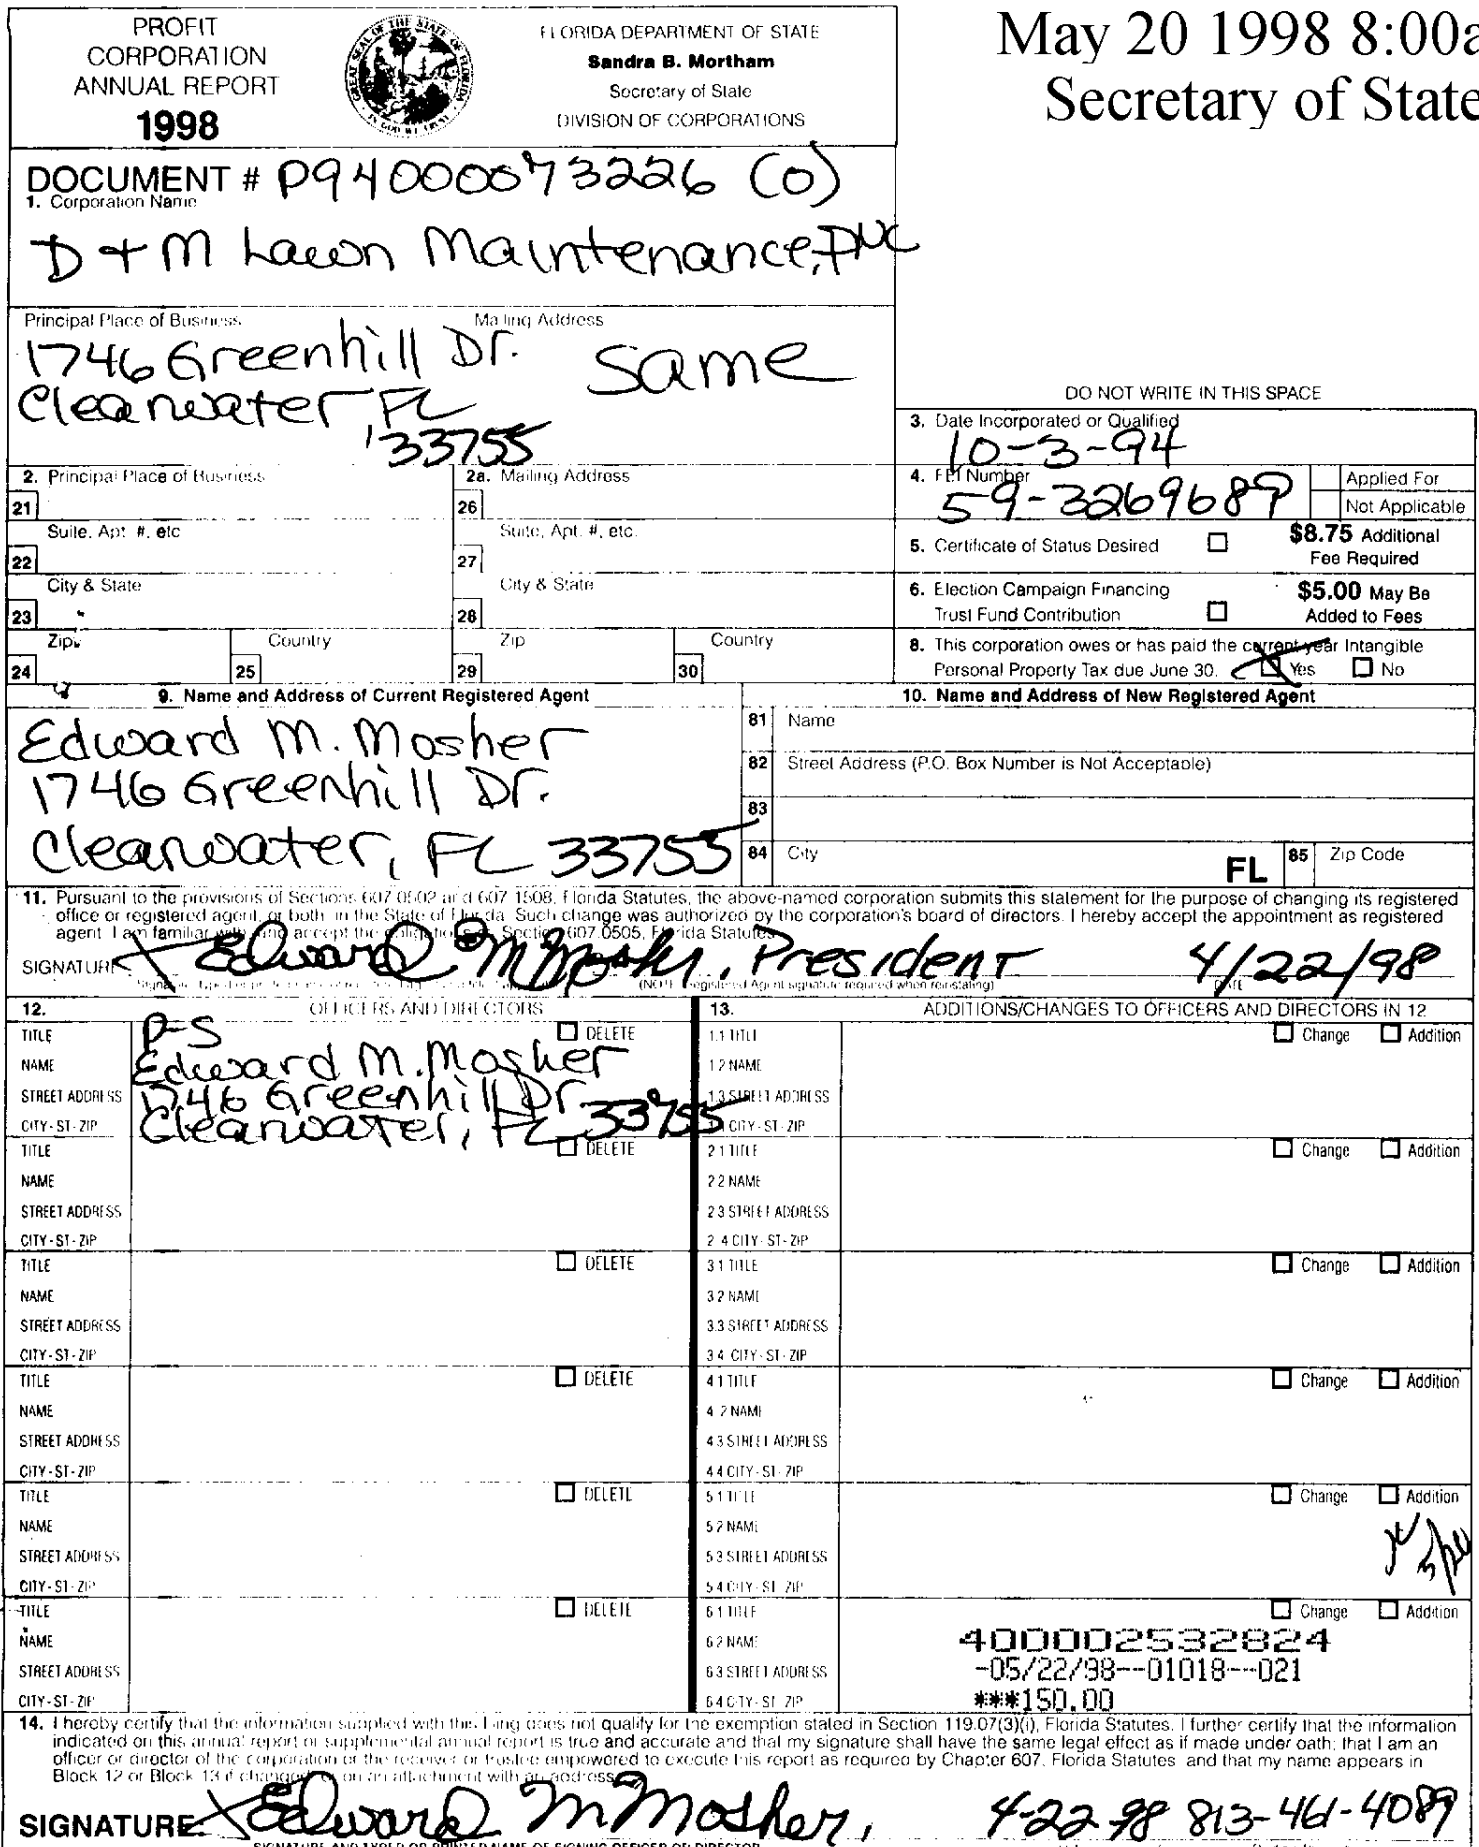 PROFIT
CORPORATION
ANNUAL REPORT
1998
FLORIDA DEPARTMENT OF STATE
Sandra B. Mortham
Secretary of State
DIVISION OF CORPORATIONS
May 20 1998 8:00a
Secretary of State
DOCUMENT # P94000073226 (0)
1. Corporation Name
D + M Lawn Maintenance, INC
Principal Place of Business Mailing Address
1746 Greenhill Dr. Same
Clearwater, FL
33755
DO NOT WRITE IN THIS SPACE
3. Date Incorporated or Qualified
10-3-94
2. Principal Place of Business 2a. Mailing Address
21 26
4. FEI Number
59-3269689
Applied For
Not Applicable
Suite, Apt. #, etc Suite, Apt. #, etc.
22 27
5. Certificate of Status Desired $8.75 Additional
Fee Required
City & State City & State
23 28
6. Election Campaign Financing $5.00 May Be
Trust Fund Contribution Added to Fees
Zip Country Zip Country
24 25 29 30
8. This corporation owes or has paid the current year Intangible
Personal Property Tax due June 30. Yes No
9. Name and Address of Current Registered Agent
Edward M. Mosher
1746 Greenhill Dr.
Clearwater, FL 33755
10. Name and Address of New Registered Agent
81 Name
82 Street Address (P.O. Box Number is Not Acceptable)
83
84 City FL 85 Zip Code
11. Pursuant to the provisions of Sections 607.0502 and 607.1508, Florida Statutes, the above-named corporation submits this statement for the purpose of changing its registered
office or registered agent, or both, in the State of Florida. Such change was authorized by the corporation's board of directors. I hereby accept the appointment as registered
agent. I am familiar with, and accept the obligations of, Section 607.0505, Florida Statutes.
SIGNATURE X Edward M Mosher, President 4/22/98
(NOTE: Registered Agent signature required when reinstating) DATE
12. OFFICERS AND DIRECTORS
TITLE P-S DELETE
NAME Edward M. Mosher
STREET ADDRESS 1746 Greenhill Dr
CITY-ST-ZIP Clearwater, FL 33755
TITLE DELETE
NAME
STREET ADDRESS
CITY-ST-ZIP
TITLE DELETE
NAME
STREET ADDRESS
CITY-ST-ZIP
TITLE DELETE
NAME
STREET ADDRESS
CITY-ST-ZIP
TITLE DELETE
NAME
STREET ADDRESS
CITY-ST-ZIP
TITLE DELETE
NAME
STREET ADDRESS
CITY-ST-ZIP
13. ADDITIONS/CHANGES TO OFFICERS AND DIRECTORS IN 12
1.1 TITLE Change Addition
1.2 NAME
1.3 STREET ADDRESS
CITY-ST-ZIP
2.1 TITLE Change Addition
2.2 NAME
2.3 STREET ADDRESS
2.4 CITY-ST-ZIP
3.1 TITLE Change Addition
3.2 NAME
3.3 STREET ADDRESS
3.4 CITY-ST-ZIP
4.1 TITLE Change Addition
4.2 NAME
4.3 STREET ADDRESS
4.4 CITY-ST-ZIP
5.1 TITLE Change Addition
5.2 NAME
5.3 STREET ADDRESS
5.4 CITY-ST-ZIP
6.1 TITLE Change Addition
6.2 NAME 400002532824
6.3 STREET ADDRESS -05/22/98--01018--021
6.4 CITY-ST-ZIP ***150.00
14. I hereby certify that the information supplied with this filing does not qualify for the exemption stated in Section 119.07(3)(i), Florida Statutes. I further certify that the information
indicated on this annual report or supplemental annual report is true and accurate and that my signature shall have the same legal effect as if made under oath; that I am an
officer or director of the corporation or the receiver or trustee empowered to execute this report as required by Chapter 607, Florida Statutes and that my name appears in
Block 12 or Block 13 if changed, or on an attachment with an address
SIGNATURE X Edward M Mosher, 4-22-98 813-461-4089
SIGNATURE AND TYPED OR PRINTED NAME OF SIGNING OFFICER OR DIRECTOR